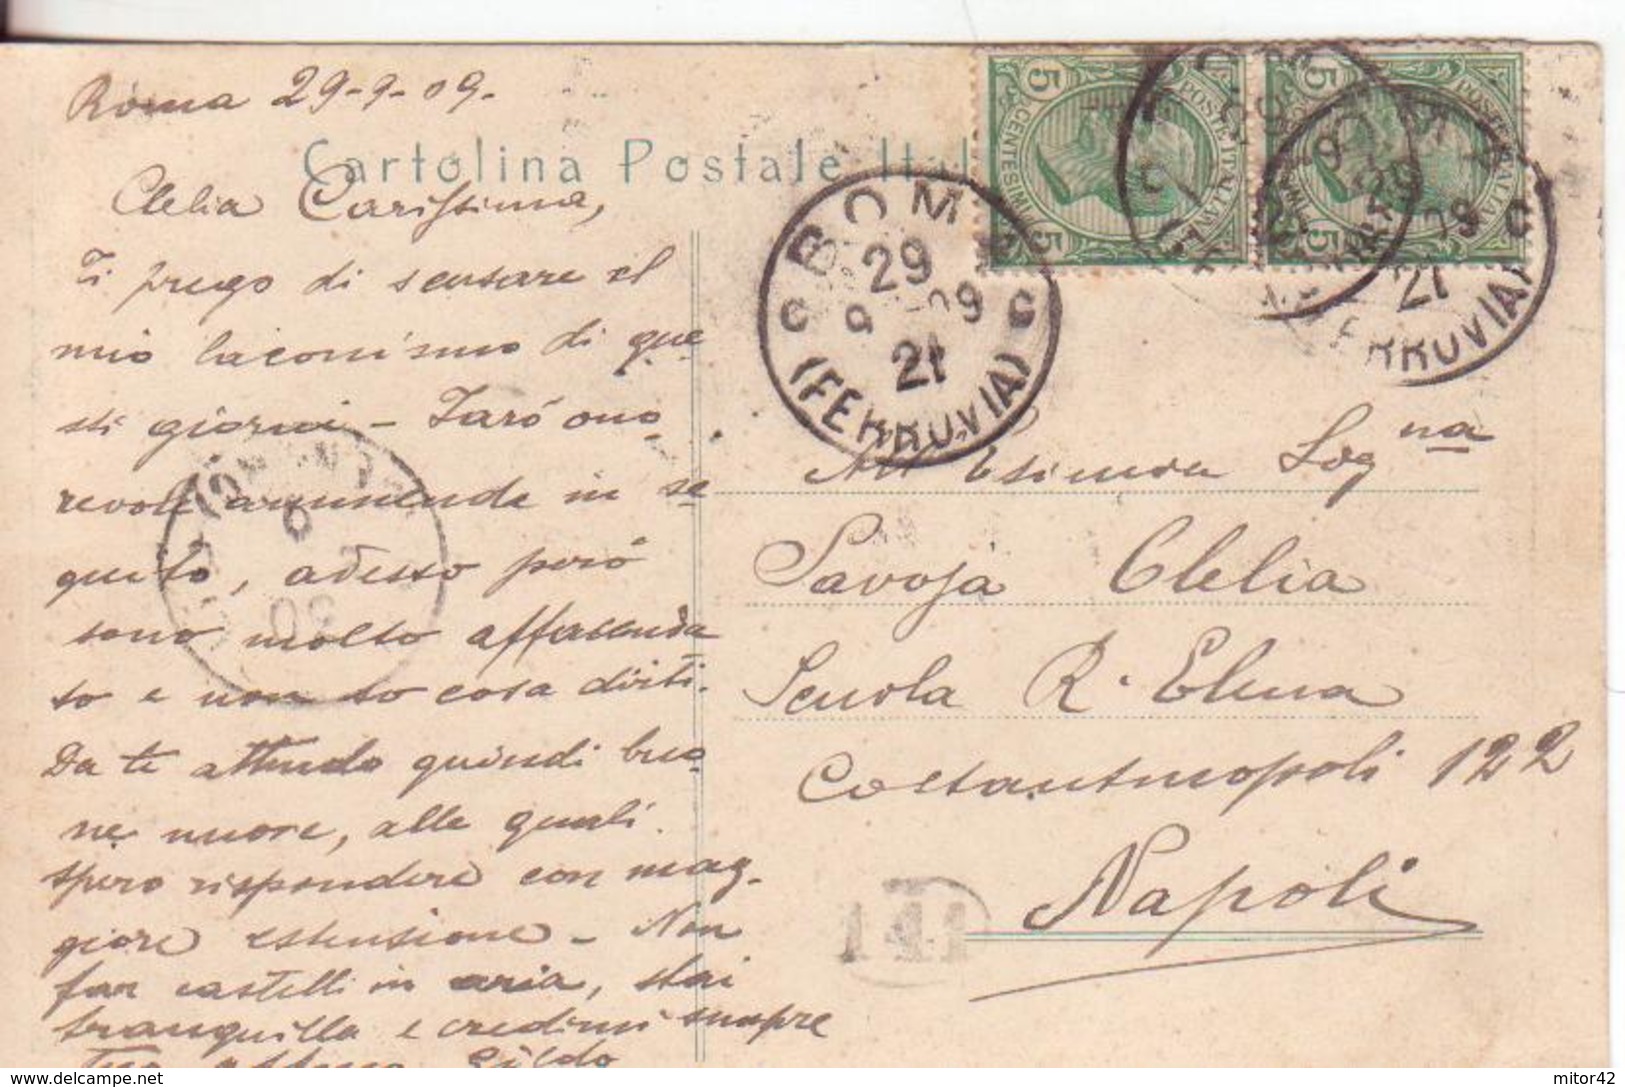 Roma 29-9-09.
Cartolina Postale Ital
Clelia Carissima,
Ti prego di scusare il
mio laconismo di que
sti giorni - Farò ono
revole ammenda in se
guito, adesso però
sono molto affaccenda
to e non so cosa dirti.
Da te attendo quindi buo
ne nuove, alle quali
spero rispondere con mag-
giore estensione - Non
far castelli in aria, stai
tranquilla e credimi sempre
Tuo affmo Gildo
ROMA
29
9 - 09
21
(FERROVIA)
5 CENTESIMI 5
POSTE ITALIANE
5 5
POSTE ITALIANE
ROMA
29
09
21
FERROVIA
All' Sig na
Savoja Clelia
Scuola R. Elena
Costantinopoli 122
Napoli
mitor42